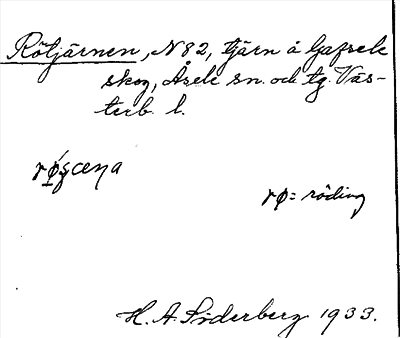 Rötjärnen, N82, tjärn å Gafsele
skog, Åsele sn. och tg. Väs-
terb. l.
rø = röding
H. A. Söderberg 1933.